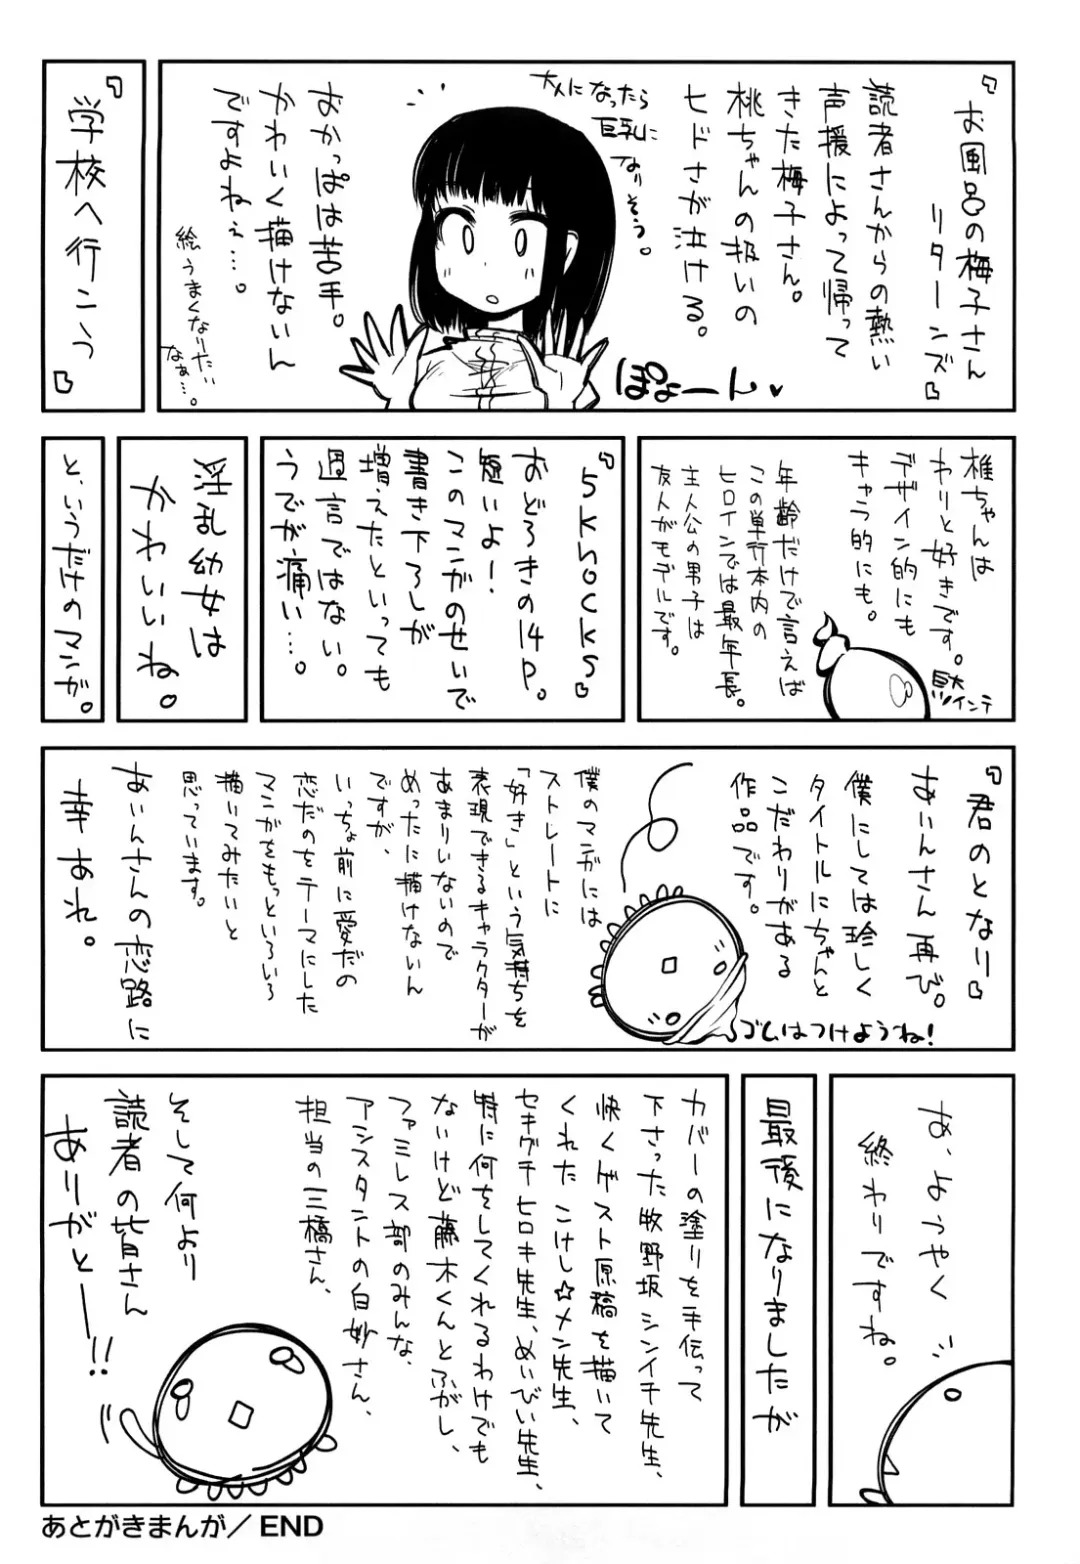 『お風呂の梅子さん
リターンズ』
読者さんからの熱い
声援によって帰って
きた梅子さん。
桃ちゃんの扱いの
ヒドさが泣ける。
大人になったら
巨乳に
なりそう。
ぽよーん♥
おかっぱは苦手。
かわいく描けないん
ですよねぇ…。
絵うまくなりたい
なぁ…。
『学校へ行こう』
椎ちゃんは
わりと好きです。
デザイン的にも
キャラ的にも。
巨大
インテ
年齢だけで言えば
この単行本内の
ヒロインでは最年長。
主人公の男子は
友人がモデルです。
『5knocks』
おどろきの14P。
短いよー!
このマンガのせいで
書き下ろしが
増えたといっても
過言ではない。
うでが痛い…。
淫乱幼女は
かわいいね。
と、いうだけのマンガ。
『君のとなり』
あいんさん再び。
僕にしては珍しく
タイトルにちゃんと
こだわりがある
作品です。
ゴムはつけようね!
僕のマンガには
ストレートに
「好き」という気持ちを
表現できるキャラクターが
あまりいないので
めったに描けないん
ですが、
いっちょ前に愛だの
恋だのをテーマにした
マンガをもっといろいろ
描いてみたいと
思っています。
あいんさんの恋路に
幸あれ。
あ、ようやく
終わりですね。
最後になりましたが
カバーの塗りを手伝って
下さった牧野坂シンイチ先生、
快くゲスト原稿を描いて
くれたこけし☆メン先生、
セキグチヒロキ先生、めいびい先生、
特に何をしてくれるわけでも
ないけど藤木くんとふがし、
ファミレス部のみんな、
アシスタントの白妙さん、
担当の三橋さん、
そして何より
読者の皆さん
ありがとー!!
あとがきまんが／END